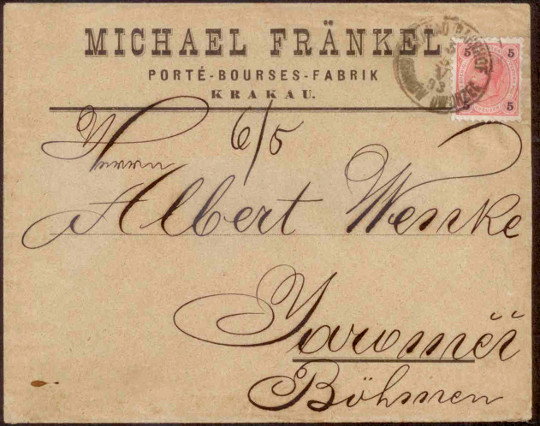 MICHAEL FRÄNKEL
PORTÉ-BOURSES-FABRIK
KRAKAU.
5 5
5
6/5
Herrn
Albert Wenke
Jaroměř
Böhmen